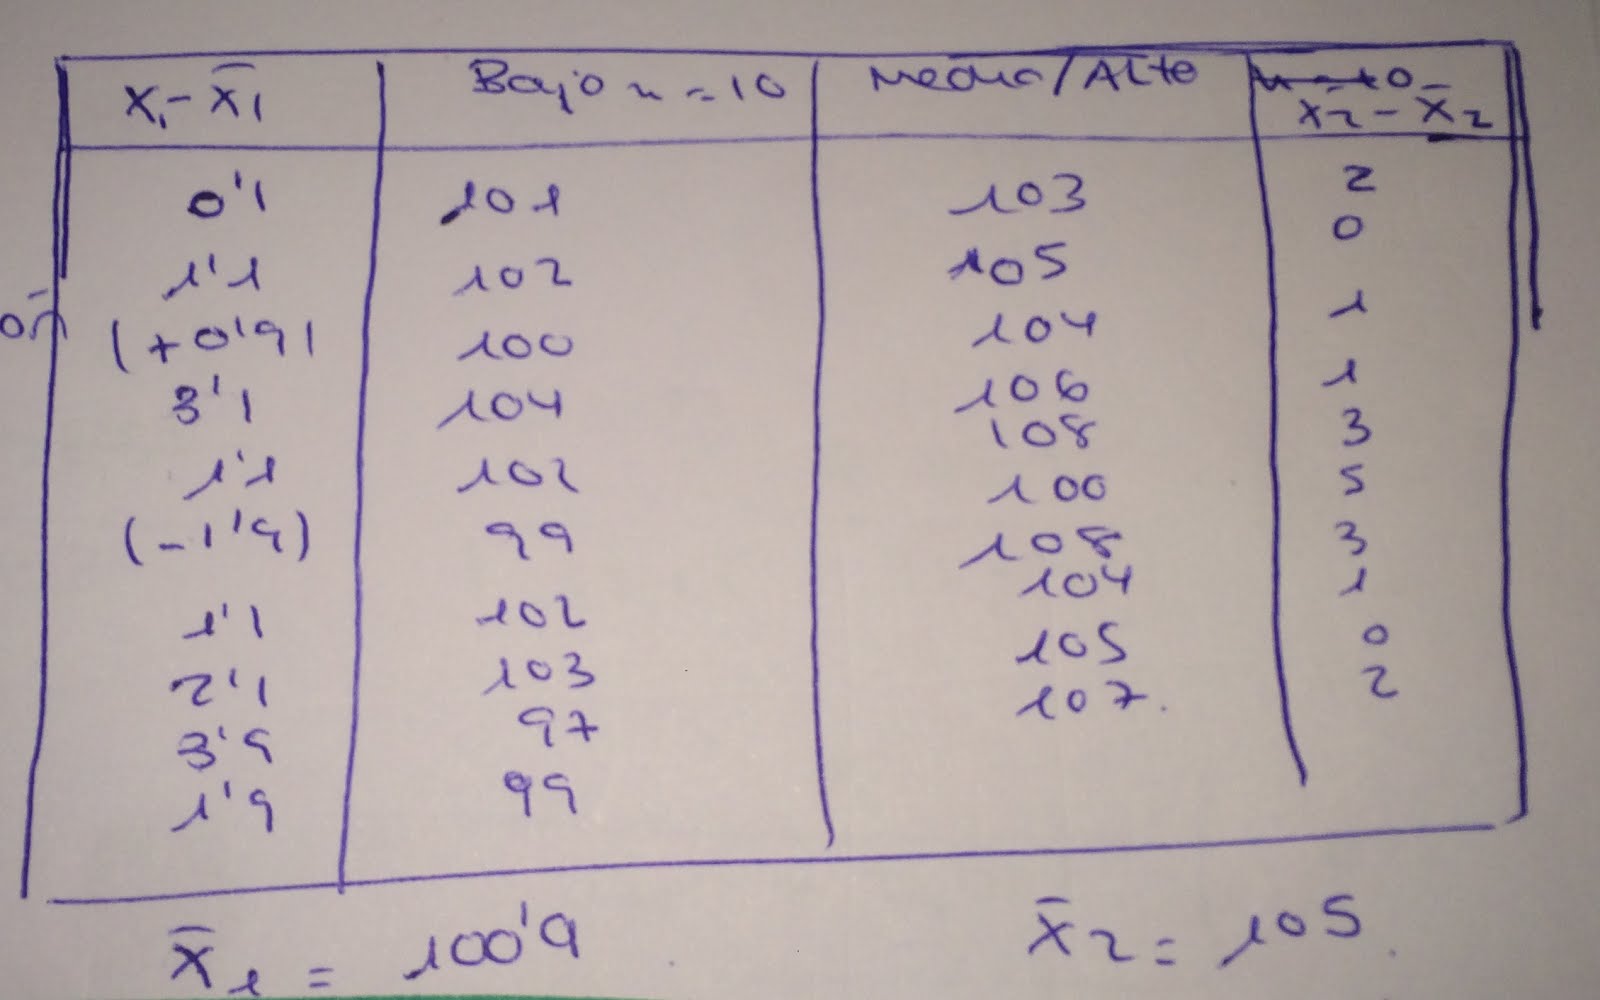 X₁-X̄₁ Bajo n=10 Media/Alto n=10
X̄2-X̄2
0'1 101 103 2
1'1 102 105 0
(+0'9) 100 104 1
3'1 104 106 1
1'1 102 108 3
(-1'9) 99 100 5
1'1 102 108 3
2'1 103 104 1
3'9 97 105 0
1'9 99 107. 2
X̄1 = 100'9 X̄2 = 105.